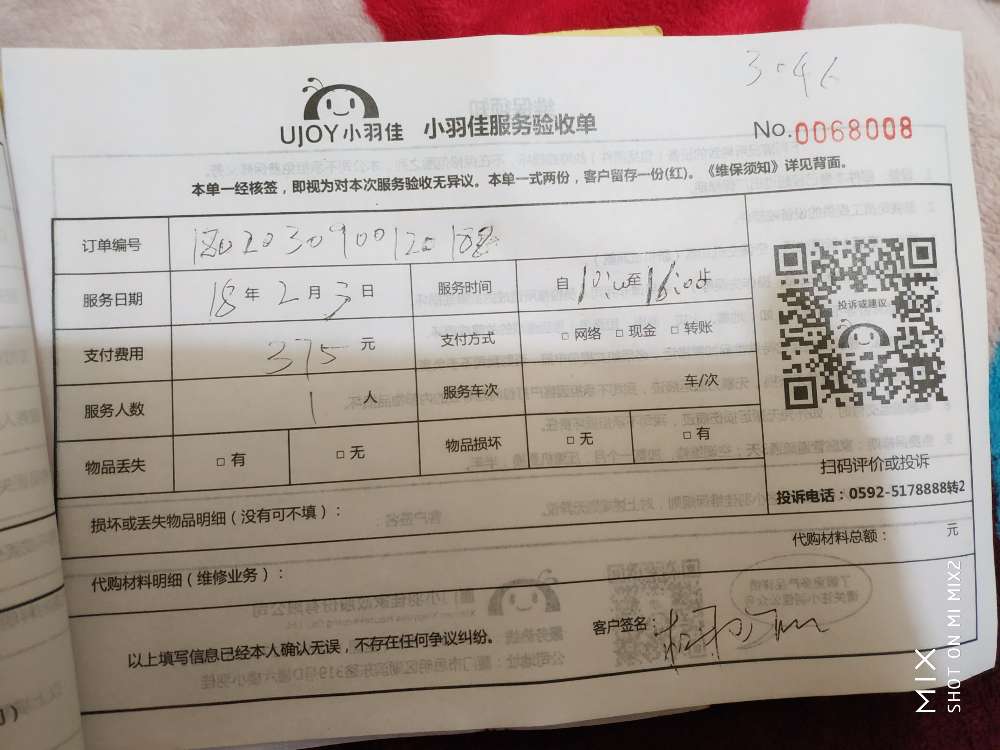 3046
UJOY小羽佳 小羽佳服务验收单 No.0068008
本单一经核签，即视为对本次服务验收无异议。本单一式两份，客户留存一份(红)。《维保须知》详见背面。
订单编号
服务日期 18年2月3日 服务时间 自10:00至16:00止
支付费用 375元 支付方式 □网络 □现金 □转账
服务人数 1人 服务车次 车/次
物品丢失 □有 □无 物品损坏 □无 □有
投诉或建议
扫码评价或投诉
投诉电话：0592-5178888转2
损坏或丢失物品明细（没有可不填）：
代购材料明细（维修业务）： 代购材料总额： 元
以上填写信息已经本人确认无误，不存在任何争议纠纷。 客户签名：
MIX
SHOT ON MI MIX2